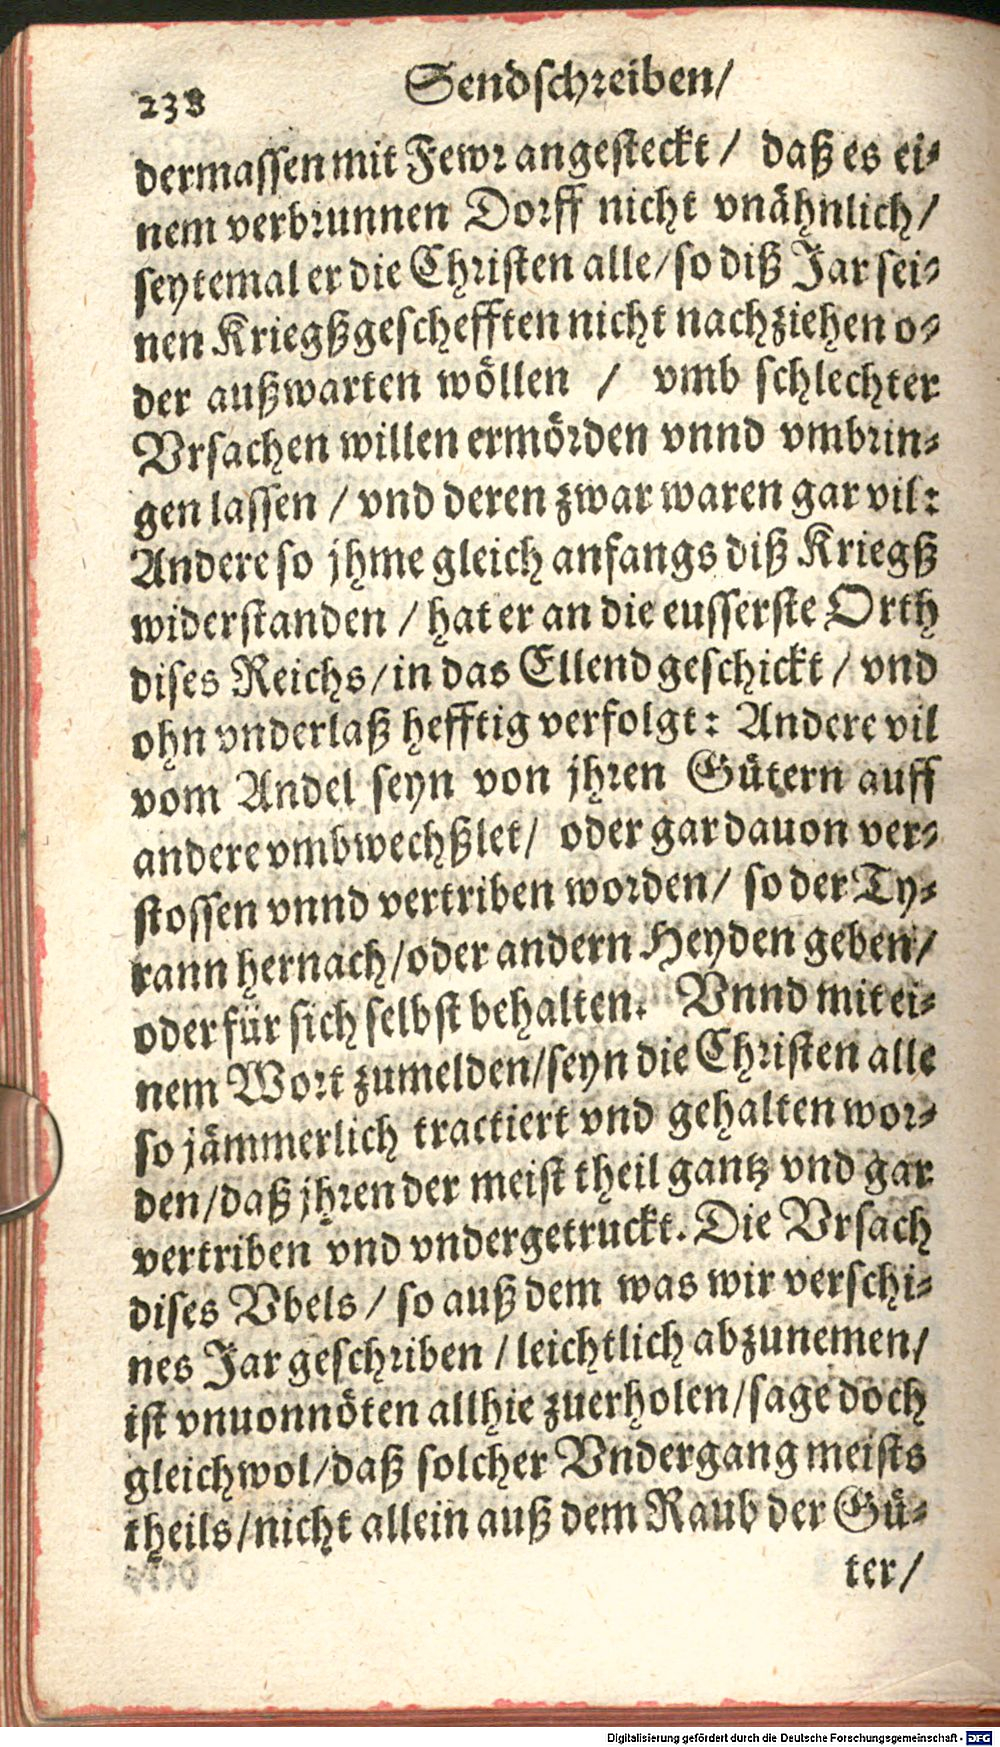 238 Sendschreiben/
dermassen mit Fewr angesteckt / daß es ei-
nem verbrunnen Dorff nicht vnähnlich/
seytemal er die Christen alle/so diß Jar sei-
nen Kriegßgeschefften nicht nachziehen o-
der außwarten wöllen / vmb schlechter
Vrsachen willen ermörden vnnd vmbrin-
gen lassen / vnd deren zwar waren gar vil:
Andere so jhme gleich anfangs diß Kriegß
widerstanden / hat er an die eusserste Orth
dises Reichs/in das Ellend geschickt / vnd
ohn vnderlaß hefftig verfolgt: Andere vil
vom Andel seyn von jhren Gütern auff
andere vmbwechßlet/ oder gar dauon ver-
stossen vnnd vertriben worden/ so der Ty-
rann hernach/oder andern Heyden geben/
oder für sich selbst behalten. Vnnd mit ei-
nem Wort zumelden/seyn die Christen alle
so jämmerlich tractiert vnd gehalten wor-
den/daß jhren der meist theil gantz vnd gar
vertriben vnd vndergetruckt. Die Vrsach
dises Vbels / so auß dem was wir verschi-
nes Jar geschriben / leichtlich abzunemen/
ist vnuonnöten allhie zuerholen/sage doch
gleichwol/daß solcher Vndergang meists
theils/nicht allein auß dem Raub der Gü-
ter/
Digitalisierung gefördert durch die Deutsche Forschungsgemeinschaft - DFG